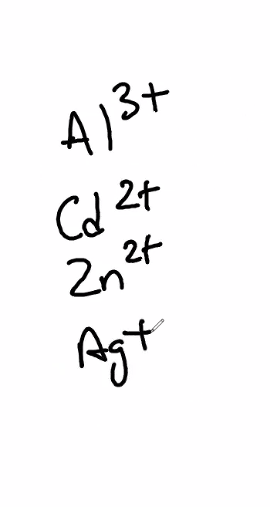 Al³⁺
Cd²⁺
Zn²⁺
Ag⁺